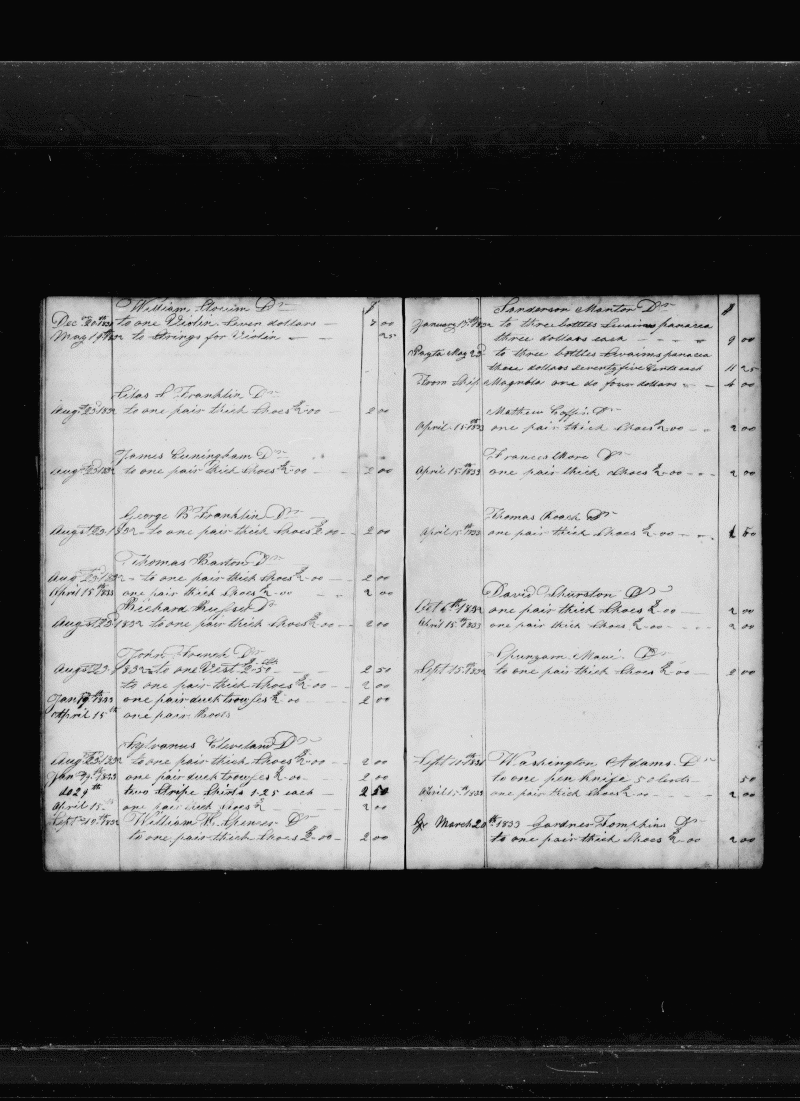 William Dr $
Dec 20th 1831 to one Violin Seven dollars 7 00
May 19th 1832 to Strings for Violin 25
Silas S Franklin Dr
Augt 23d 1832 to one pair thick Shoes $2-00 2 00
James Cuningham Dr
Augt 23d 1832 to one pair thick Shoes $2-00 2 00
George B Franklin Dr
Augst 23d 1832 to one pair thick Shoes $2-00 2 00
Thomas Barton Dr
Aug 23d 1832 to one pair thick Shoes $2-00 2 00
April 15th 1833 one pair thick Shoes $2-00 2 00
Richard Dr
Augst 23d 1832 to one pair thick Shoes $2-00 2 00
John French Dr
Augst 23d 1832 to one Vest $2-50 2 50
to one pair thick Shoes $2-00 2 00
Jan 19th 1833 one pair duck trowses $2-00 2 00
April 15th one pair Boots
Sylvanus Cleveland Dr
Aug 23d 1832 to one pair thick Shoes $2-00 2 00
Jan 19th 1833 one pair duck trowses $2-00 2 00
do 29th two Stripe Shirts 1-25 each 2 50
April 15th one pair thick Shoes $2 2 00
Sept 10th 1832 William H Spencer Dr
to one pair thick Shoes $2-00 2 00
Sanderson Manton Dr $
January 17th 1832 to three bottles Swaims panacea
three dollars each 9 00
Payta May 23d to three bottles Swaims panacea
three dollars seventy five Cents each 11 25
From Ship Magnolia one do four dollars 4 00
Mathew Coffin Dr
April 15th 1833 one pair thick Shoes $2-00 2 00
Francis Dr
April 15th 1833 one pair thick Shoes $2-00 2 00
Thomas Roach Dr
April 15th 1833 one pair thick Shoes $2-00 50
David Thurston Dr
Oct 6th 1832 one pair thick Shoes $2-00 2 00
April 15th 1833 one pair thick Shoes $2-00 2 00
Spunyarn Maui Dr
Sept 15th 1832 to one pair thick Shoes $2-00 2 00
Sept 10th 1832 Washington Adams Dr
to one pen knife 50 Cents 50
April 15th 1833 one pair thick Shoes $2-00 2 00
March 20th 1833 Gardner Tompkins Dr
to one pair thick Shoes $2-00 2 00